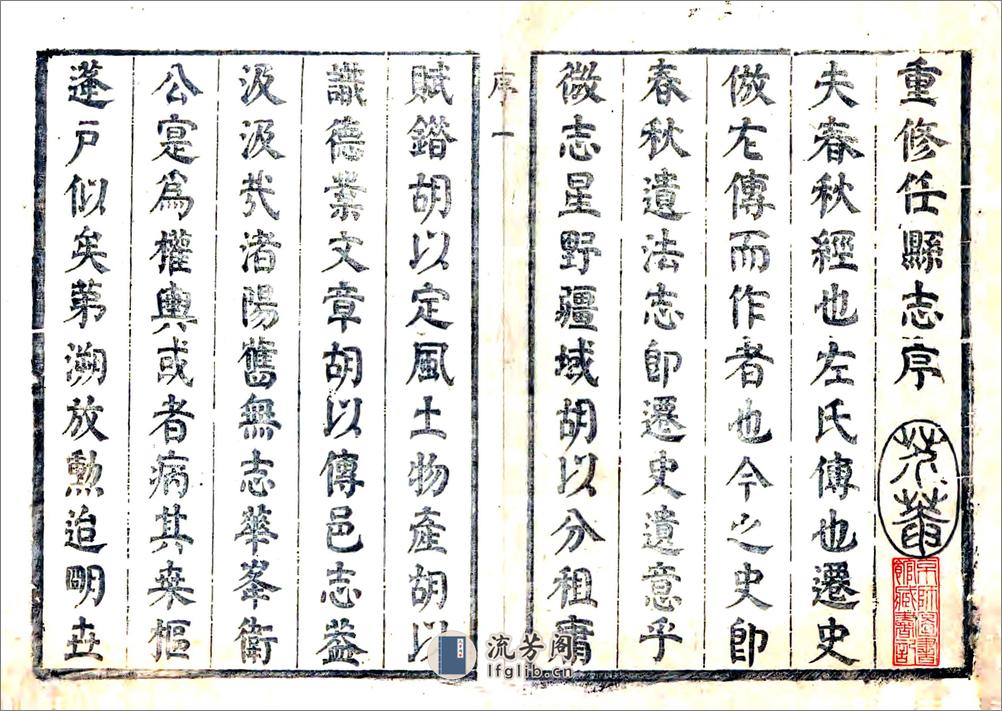 重修任縣志序
夫春秋經也左氏傳也遷史
倣左傳而作者也今之史即
春秋遺法志即遷史遺意乎
微志星野疆域胡以分租庸
序
一
賦鎦胡以定風土物產胡以
識德業文章胡以傳邑志葢
汲汲哉渚陽舊無志華峯衛
公寔爲權輿或者病其桒樞
蓬戶似矣苐溯放勲迨明世
京師圖書館藏書記
流芳阁
lfglib.cn